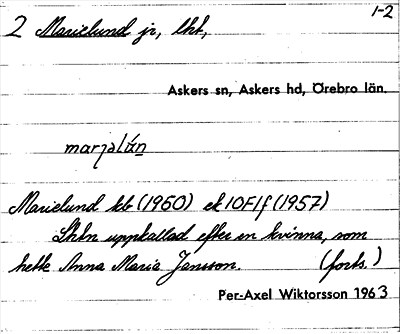 1-2
2 Marielund jr, lht,
Askers sn, Askers hd, Örebro län.
Marielund kb (1960) ek 10F1f (1957)
Lhtn uppkallad efter en kvinna, som
hette Anna Maria Jansson. (forts.)
Per-Axel Wiktorsson 1963